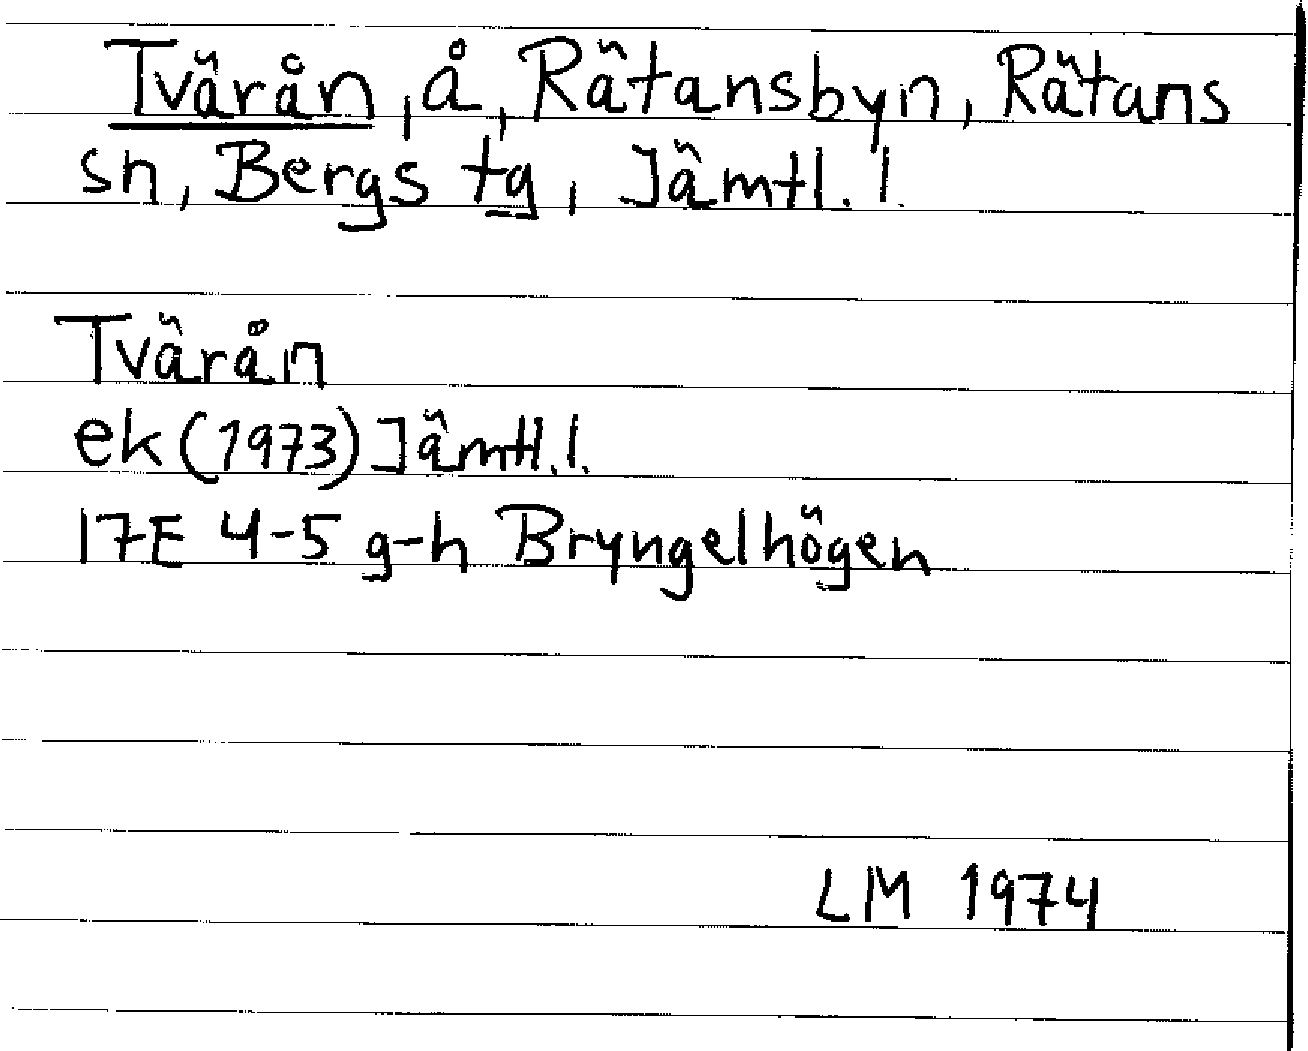 Tvärån, å, Rätansbyn, Rätans
sn, Bergs tg, Jämtl. l.
Tvärån
ek (1973) Jämtl. l.
17E 4-5 g-h Bryngelhögen
LM 1974